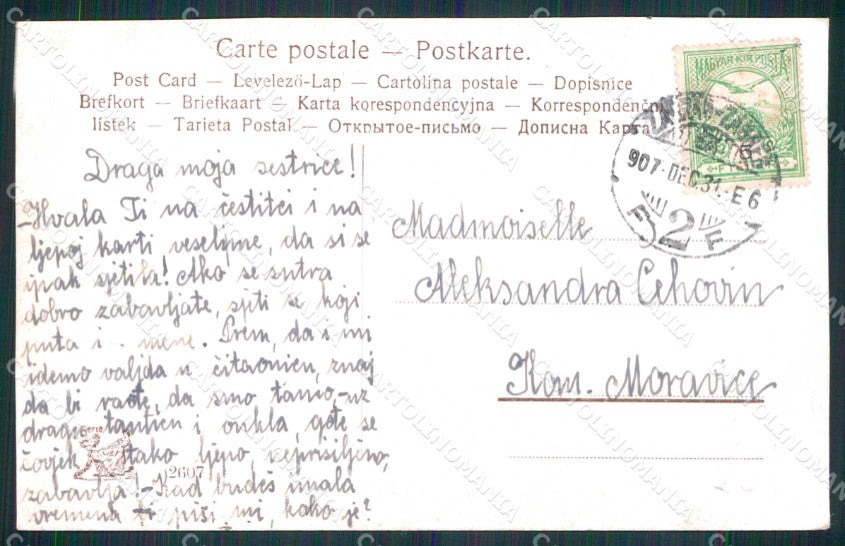 Carte postale — Postkarte.
Post Card — Levelező-Lap — Cartolina postale — Dopisnice
Brefkort — Briefkaart — Karta korespondencyjna — Korrespondenční
lístek — Tarjeta Postal — Открытое-письмо — Дописна Карта
MAGYAR KIR. POSTA
907. DEC. 31. E 6
2
Draga moja sestrice!
Hvala Ti na čestitci i na
ljepoj karti veselime, da si se
ipak sjetila! Ako se sutra
dobro zabavljate, sjeti se koji
puta i - mene. Prem, da i mi
idemo valjda u čitaonicu, znaj
da bi rađe, da smo tamo, uz
dragu tanticu i onkla, gdje se
čovjek tako ljepo, neprisiljeno,
zabavlja! - Kad budeš imala
vremena piši mi, kako je?
Madmoiselle
Aleksandra Čehovin
Kom. Moravice
Serie
2607
CARTOLINOMANIA